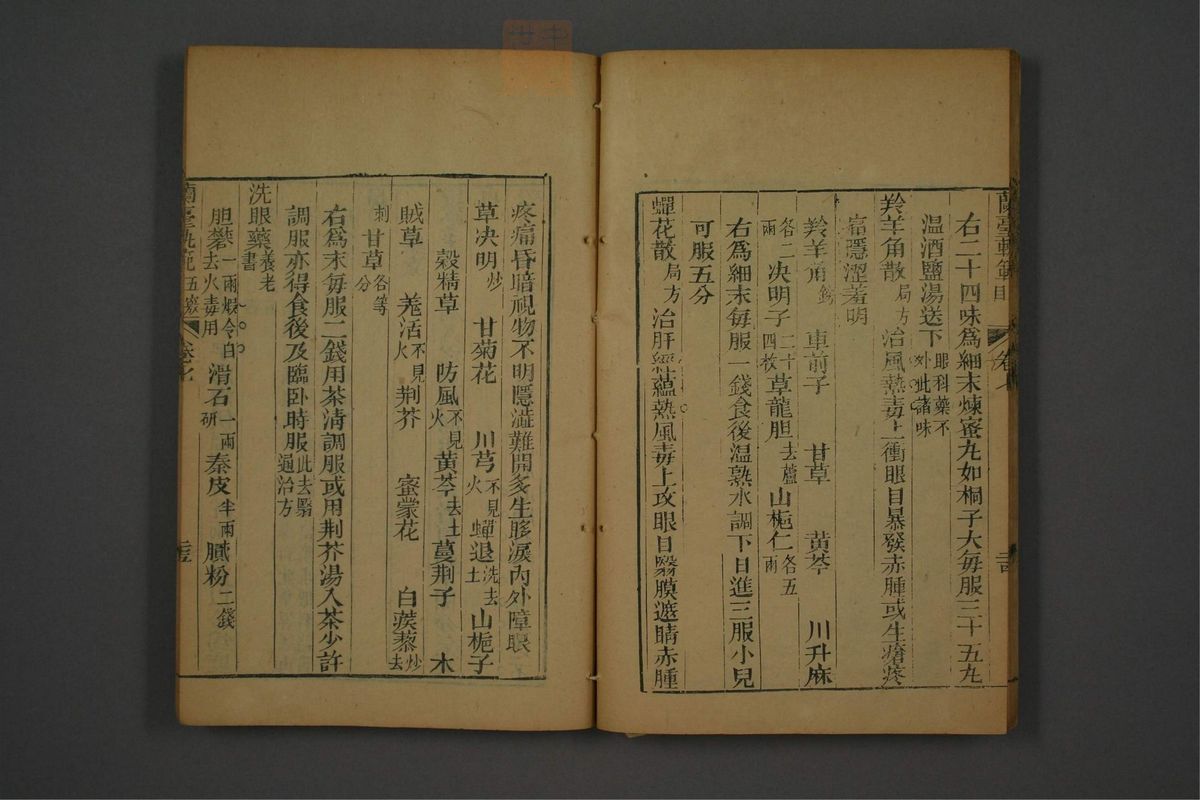 蘭臺軌範目 卷七 二十四
右二十四味爲細末煉蜜丸如桐子大每服三十五丸
溫酒鹽湯送下眼科藥不外此諸味
羚羊角散局方 治風熱毒上衝眼目暴發赤腫或生瘡疼
痛隱澀羞明
羚羊角鎊 車前子 甘草 黃芩 川升麻
各二兩 决明子二十四枚 草龍胆去蘆 山梔仁各五兩
右爲細末每服一錢食後溫熟水調下日進三服小兒
可服五分
蟬花散局方 治肝經蘊熱風毒上攻眼目翳膜遮睛赤腫
疼痛昏暗視物不明隱澁難開多生眵淚內外障眼
草决明炒 甘菊花 川芎不見火 蟬退洗去土 山梔子
穀精草 防風不見火 黃芩去土 蔓荆子 木
賊草 羗活不見火 荆芥 蜜蒙花 白蒺藜炒去
刺 甘草各等分
右爲末每服二錢用茶淸調服或用荆芥湯入茶少許
調服亦得食後及臨卧時服此去翳通治方
洗眼藥養老書
胆礬一兩煅令白去火毒用 滑石一兩研 秦皮半兩 膩粉二錢
蘭臺軌範 卷七 二十五